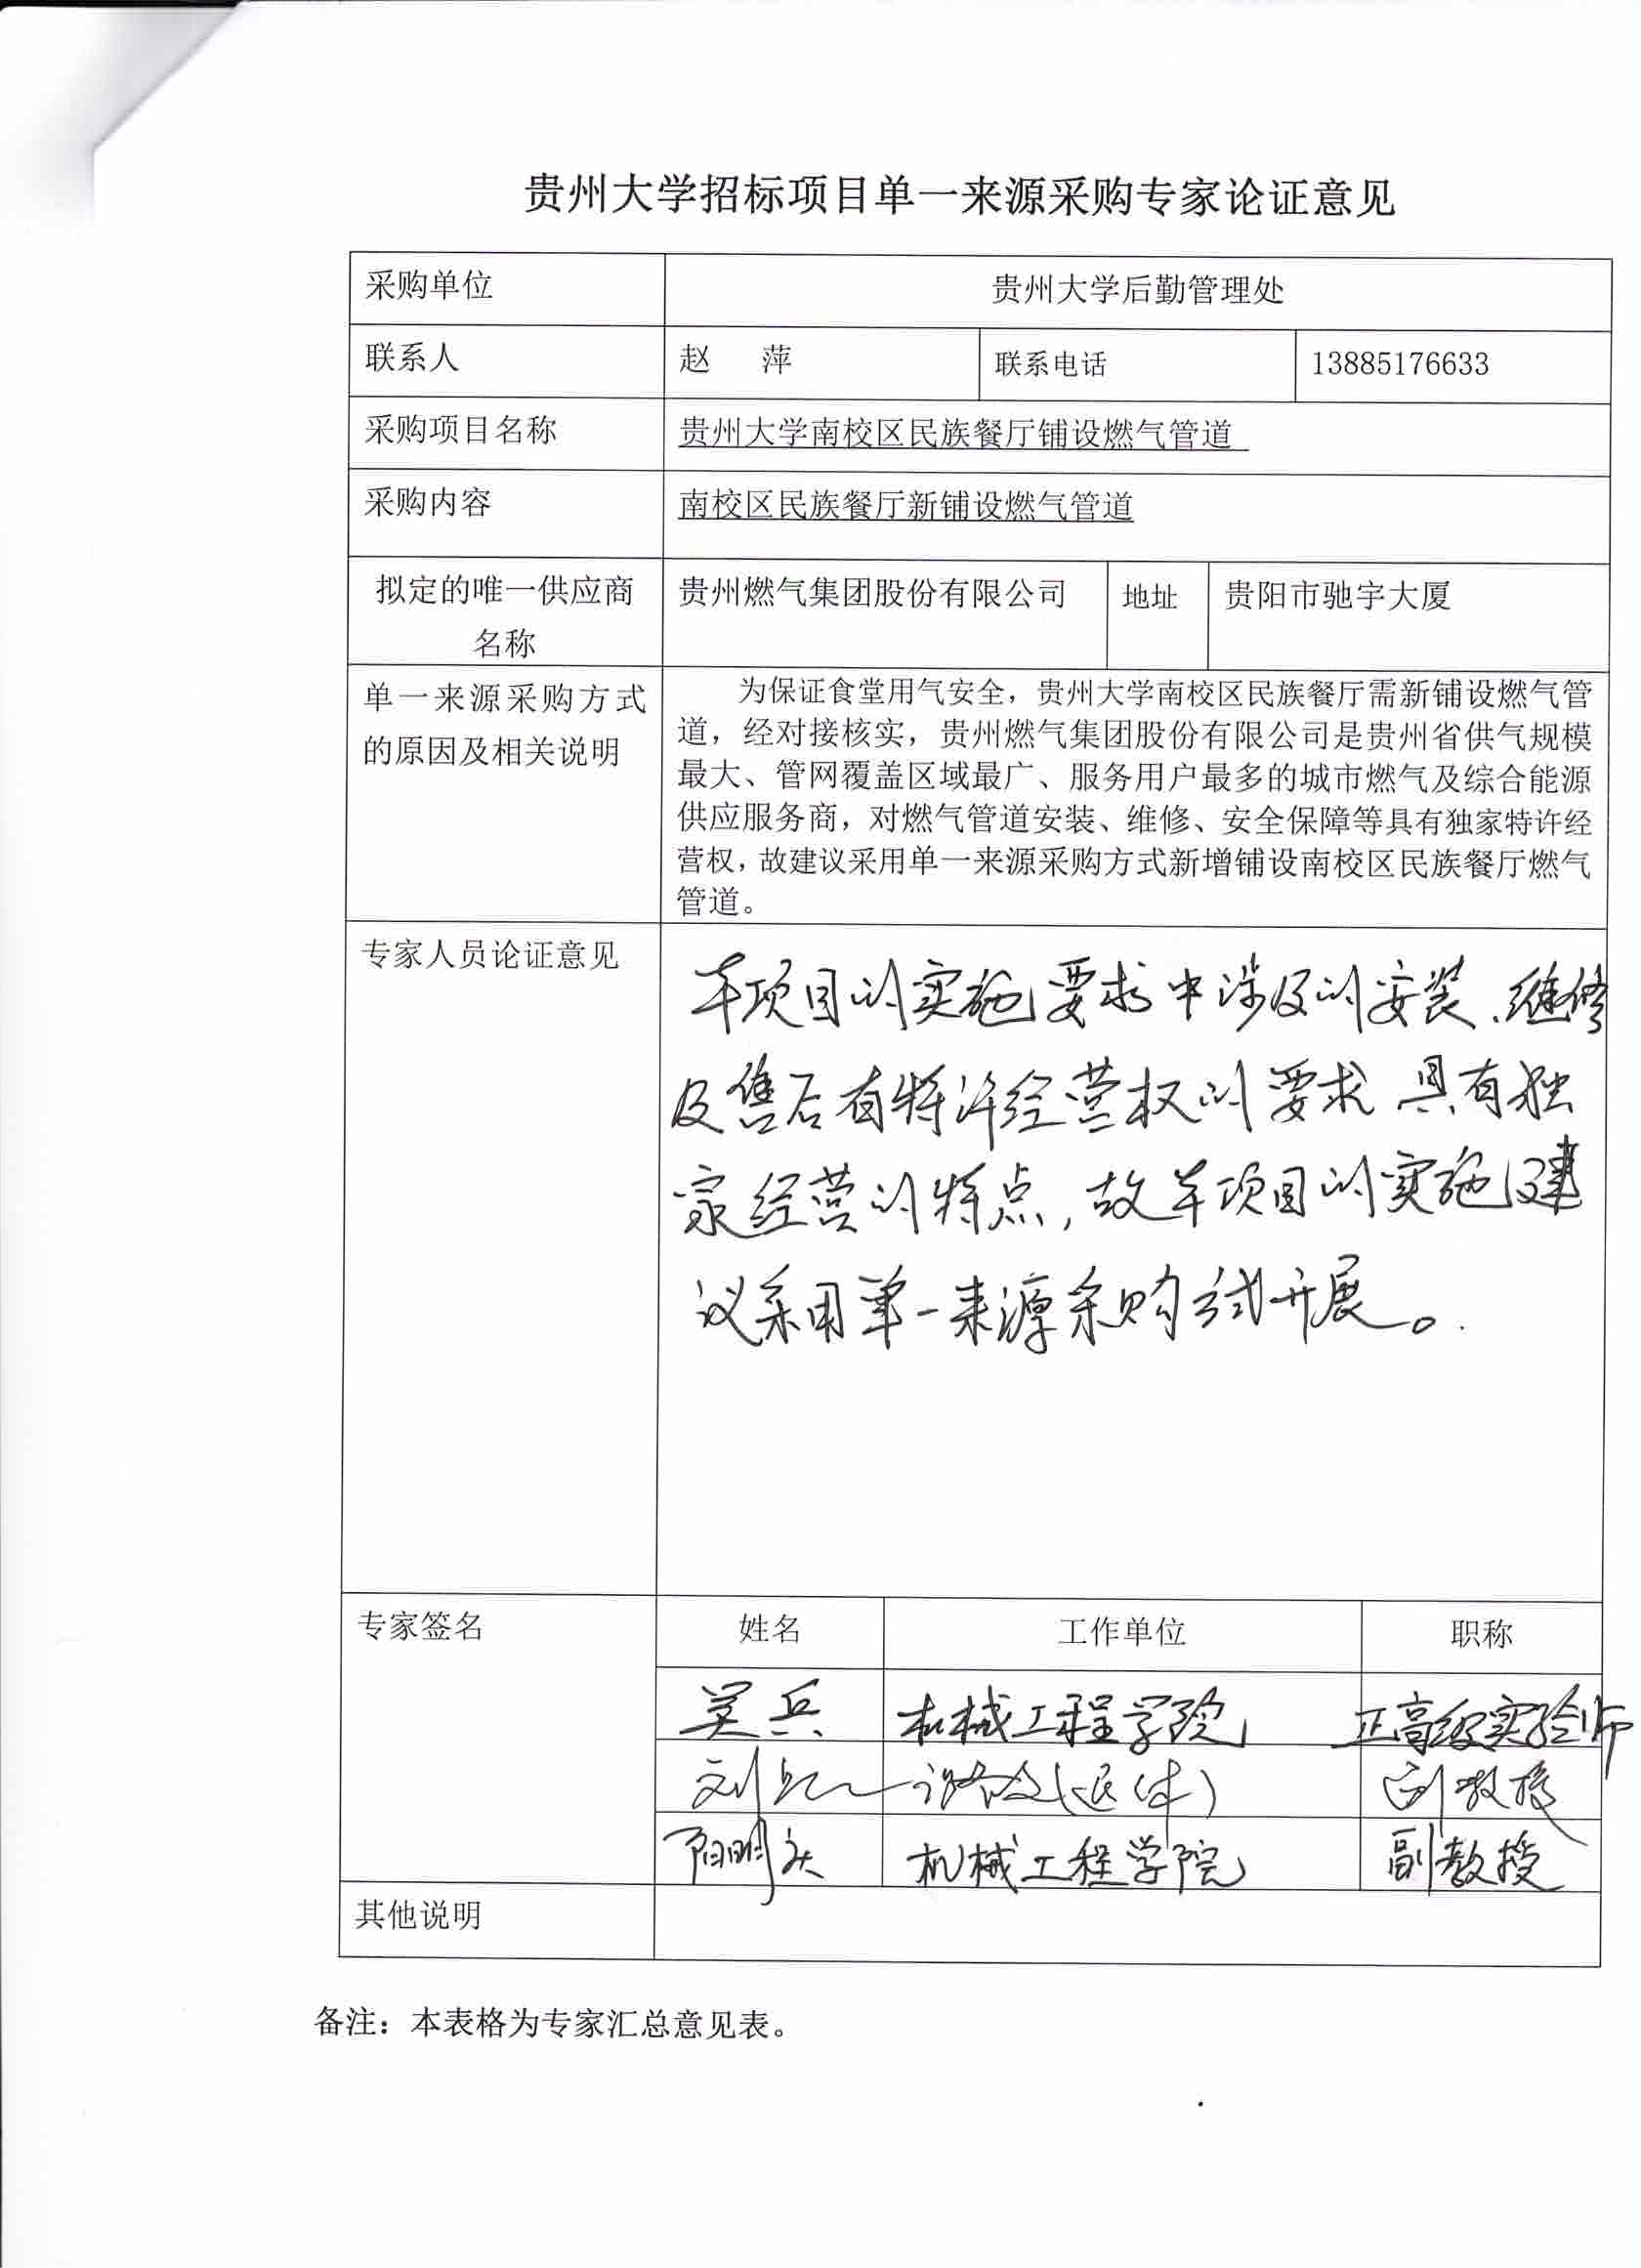 贵州大学招标项目单一来源采购专家论证意见
采购单位 贵州大学后勤管理处
联系人 赵 萍 联系电话 13885176633
采购项目名称 贵州大学南校区民族餐厅铺设燃气管道
采购内容 南校区民族餐厅新铺设燃气管道
拟定的唯一供应商 贵州燃气集团股份有限公司 地址 贵阳市驰宇大厦
名称
单一来源采购方式 为保证食堂用气安全，贵州大学南校区民族餐厅需新铺设燃气管
的原因及相关说明 道，经对接核实，贵州燃气集团股份有限公司是贵州省供气规模
最大、管网覆盖区域最广、服务用户最多的城市燃气及综合能源
供应服务商，对燃气管道安装、维修、安全保障等具有独家特许经
营权，故建议采用单一来源采购方式新增铺设南校区民族餐厅燃气
管道。
专家人员论证意见 本项目的实施要求中涉及的安装、维修
及售后有特许经营权的要求 具有独
家经营的特点，故本项目的实施建
议采用单一来源采购方式开展。
专家签名 姓名 工作单位 职称
吴兵 机械工程学院 正高级实验师
刘 (退休) 副教授
阳明庆 机械工程学院 副教授
其他说明
备注：本表格为专家汇总意见表。